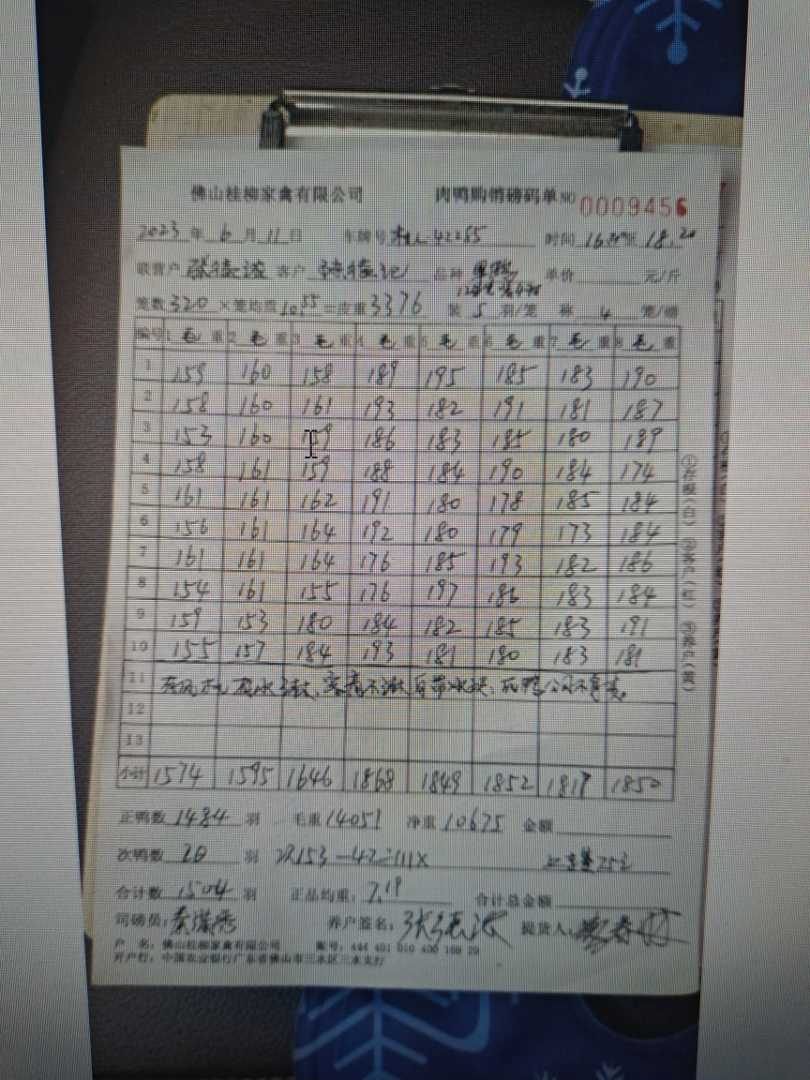 佛山桂柳家禽有限公司 肉鸭购销磅码单 NO 0009456
2023年6月11日 车牌号 42255 时间 16 18:20
联营户 张德 客户 张德 品种 单价 元/斤
笼数 320 ×笼均重 10.55 =皮重 3376 装 5 羽/笼 称 4 笼/磅
编号 1 毛 重 2 毛 重 3 毛 重 4 毛 重 5 毛 重 6 毛 重 7 毛 重 8 毛 重
1 159 160 158 189 195 185 183 190
2 158 160 161 193 182 191 181 187
3 153 160 159 186 183 185 180 189
4 158 161 159 188 184 190 184 174
5 161 161 162 191 180 178 185 184
6 156 161 164 192 180 179 173 184
7 161 161 164 176 185 193 182 186
8 154 161 155 176 197 186 183 184
9 159 153 180 184 182 185 183 191
10 155 157 184 193 181 180 183 181
11 有风 有水 客 不 自带水 死鸭公司不负责。
12
13
小计 1574 1595 1646 1868 1849 1852 1817 1850
正鸭数 1484 羽 毛重 14051 净重 10675 金额
次鸭数 20 羽 153-42=111
合计数 1504 羽 正品均重: 7.19 合计总金额
司磅员: 养户签名: 张 提货人:
户 名: 佛山桂柳家禽有限公司 账号: 444 401 010 400 168 29
开户行: 中国农业银行广东省佛山市三水区三水支行
①存根(白) ②客户(红) ③养户(黄)